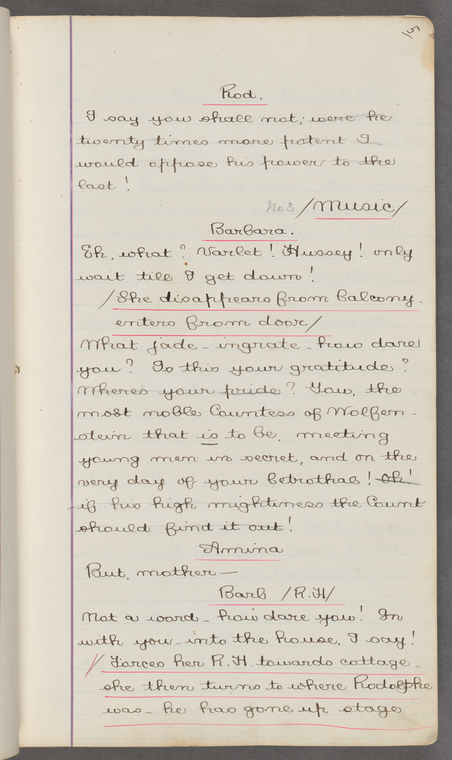 51
Rod.
I say you shall not; were he
twenty times more potent I
would oppose his power to the
last!
No 3 /Music/
Barbara.
Eh, what? Varlet! Hussey! only
wait till I get down!
/She disappears from balcony -
enters from door/
What jade - ingrate - how dare
you? Is this your gratitude?
Where's your pride? You, the
most noble Countess of Wolfen-
stein that is to be, meeting
young men in secret, and on the
very day of your betrothal! Oh!
if his high mightiness the Count
should find it out!
Amina
But, mother —
Barb /R.H/
Not a word - how dare you! In
with you - into the house, I say!
/Forces her R.H. towards cottage -
she then turns to where Rodolphe
was - he has gone up stage